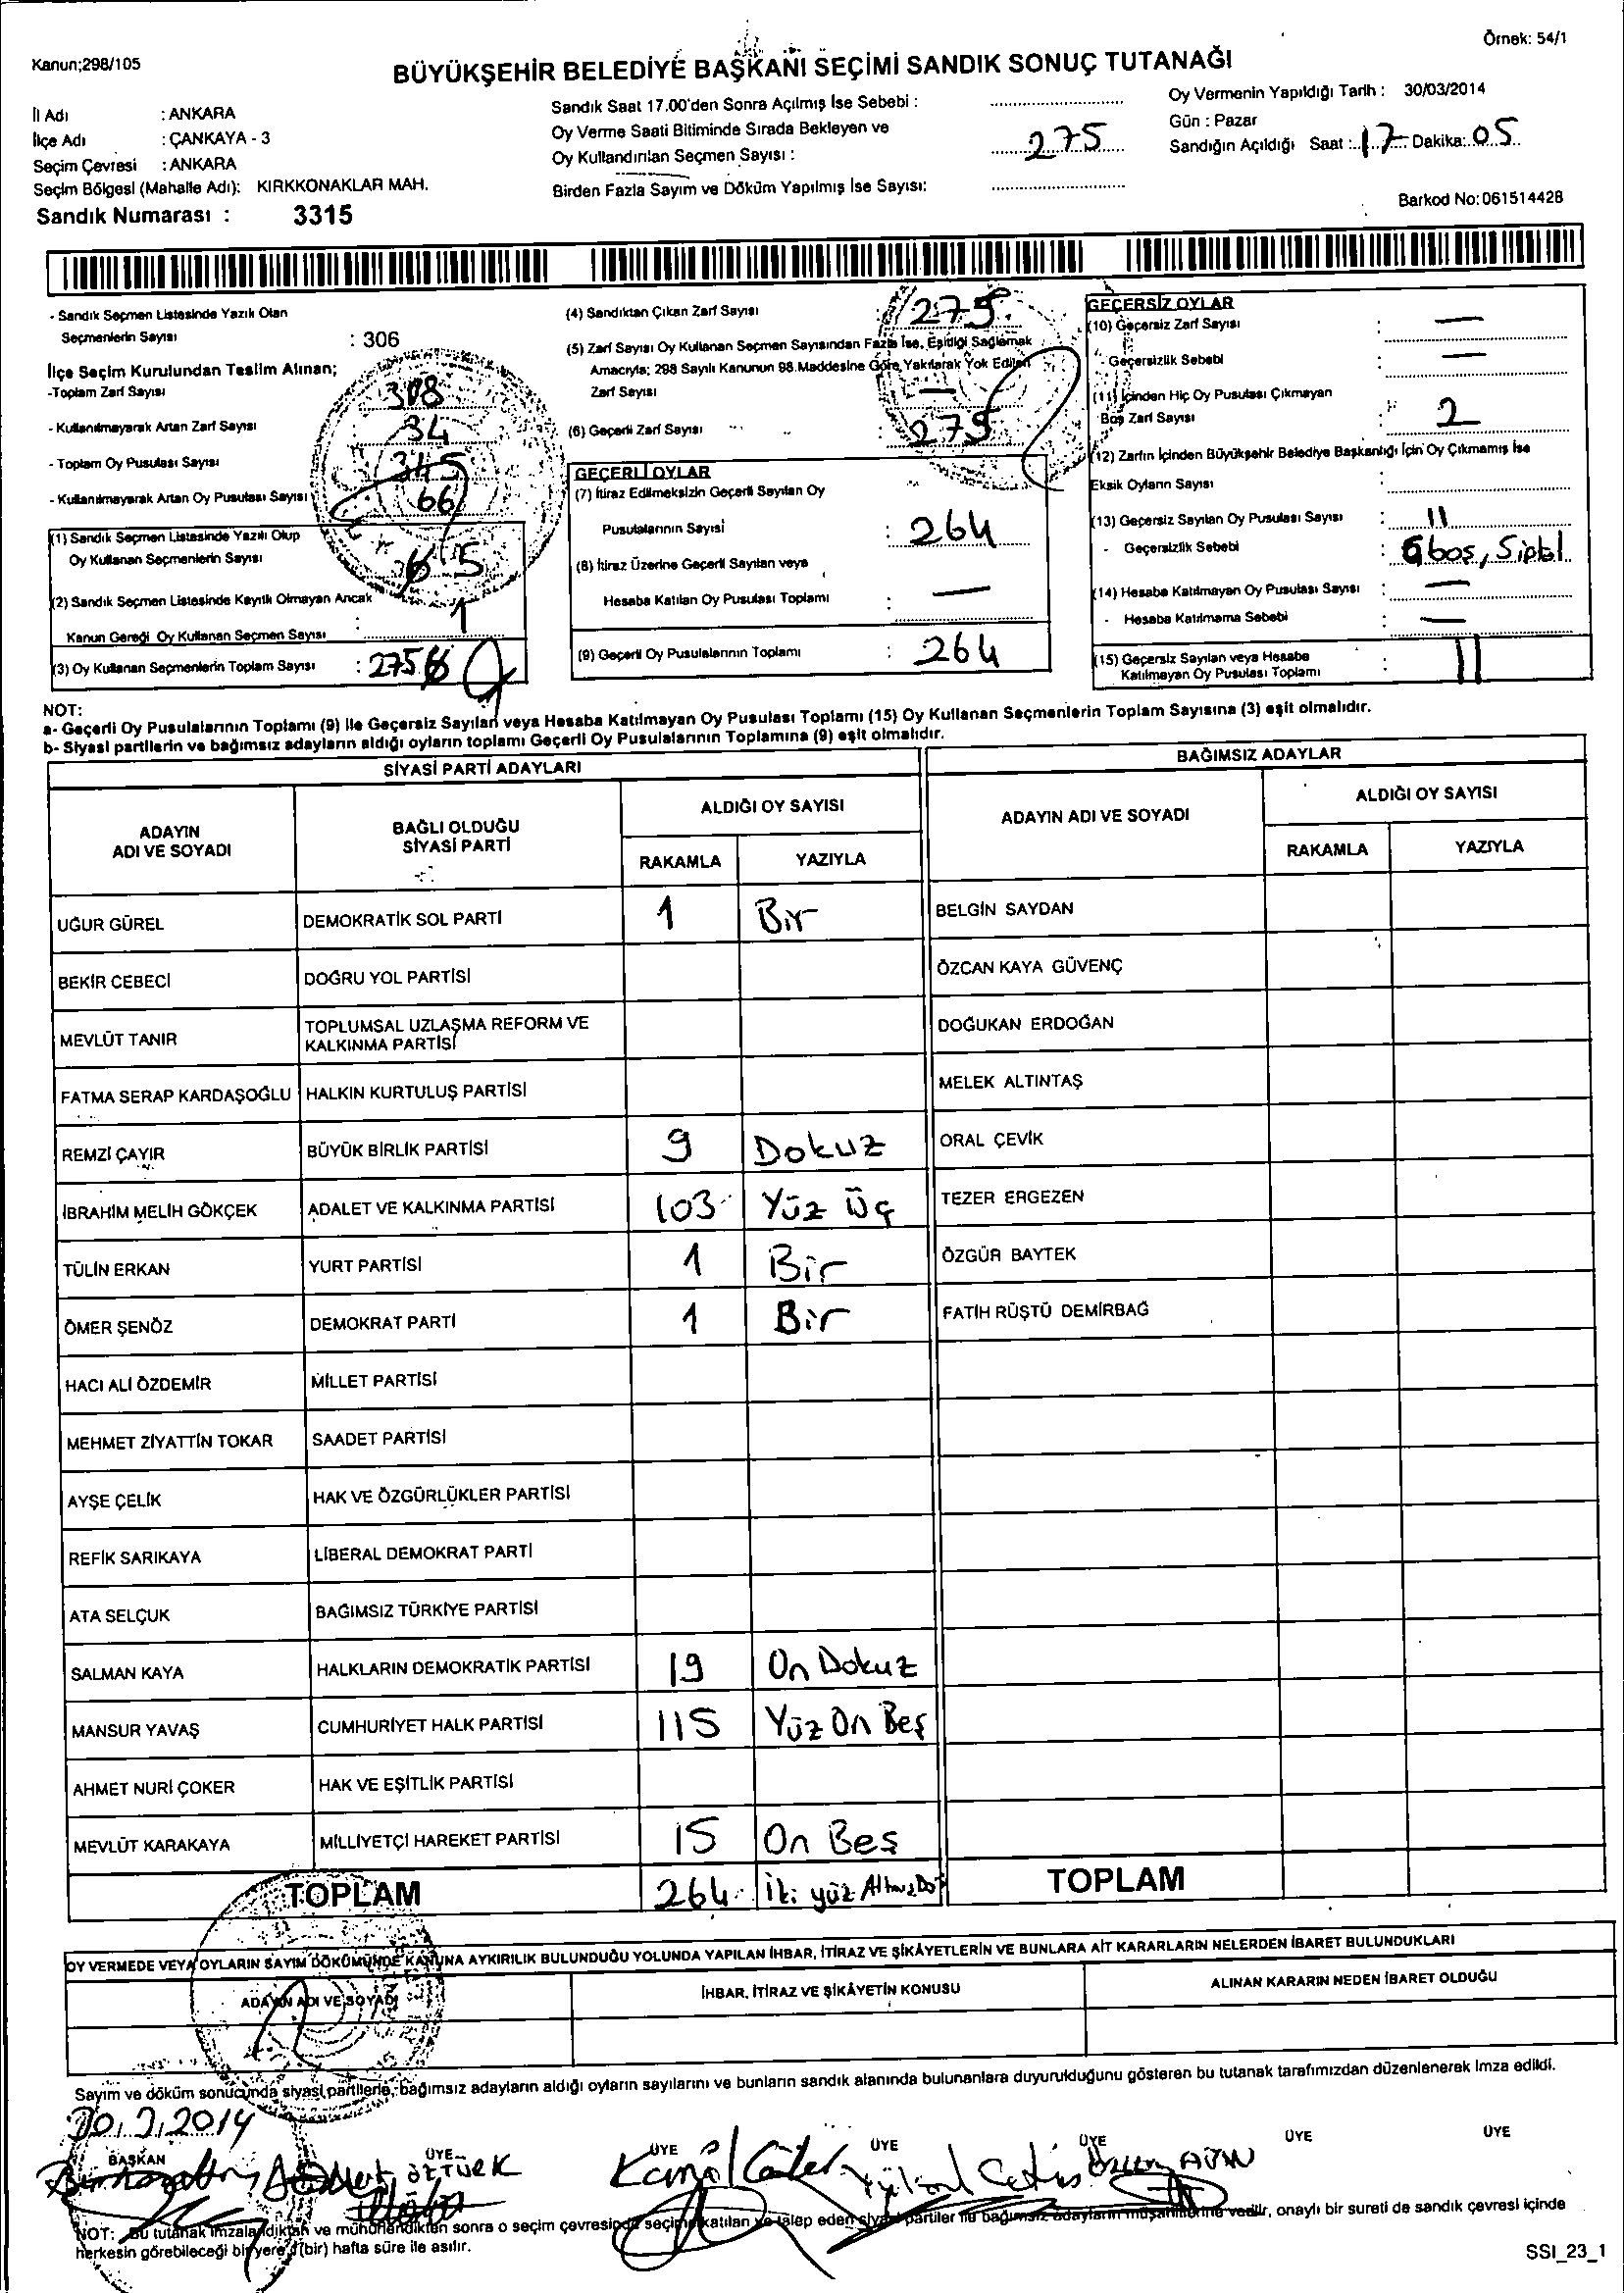 Örnek: 54/1
Kanun;298/105
BÜYÜKŞEHİR BELEDİYE BAŞKANI SEÇİMİ SANDIK SONUÇ TUTANAĞI
İl Adı : ANKARA
İlçe Adı : ÇANKAYA - 3
Seçim Çevresi : ANKARA
Seçim Bölgesi (Mahalle Adı): KIRKKONAKLAR MAH.
Sandık Numarası : 3315
Sandık Saat 17.00'den Sonra Açılmış İse Sebebi :
Oy Verme Saati Bitiminde Sırada Bekleyen ve
Oy Kullandırılan Seçmen Sayısı : 275
Birden Fazla Sayım ve Döküm Yapılmış İse Sayısı:
Oy Vermenin Yapıldığı Tarih : 30/03/2014
Gün : Pazar
Sandığın Açıldığı Saat : 17 Dakika: 05
Barkod No: 061514428
- Sandık Seçmen Listesinde Yazılı Olan
Seçmenlerin Sayısı : 306
İlçe Seçim Kurulundan Teslim Alınan;
-Toplam Zarf Sayısı 308
- Kullanılmayarak Artan Zarf Sayısı 34
- Toplam Oy Pusulası Sayısı 345
- Kullanılmayarak Artan Oy Pusulası Sayısı 66
(1) Sandık Seçmen Listesinde Yazılı Olup
Oy Kullanan Seçmenlerin Sayısı
(2) Sandık Seçmen Listesinde Kayıtlı Olmayan Ancak
Kanun Gereği Oy Kullanan Seçmen Sayısı : 1
(3) Oy Kullanan Seçmenlerin Toplam Sayısı : 275
(4) Sandıktan Çıkan Zarf Sayısı 275
(5) Zarf Sayısı Oy Kullanan Seçmen Sayısından Fazla İse, Eşitliği Sağlamak
Amacıyla; 298 Sayılı Kanunun 98.Maddesine Göre Yakılarak Yok Edilen
Zarf Sayısı —
(6) Geçerli Zarf Sayısı : 275
GEÇERLİ OYLAR
(7) İtiraz Edilmeksizin Geçerli Sayılan Oy
Pusulalarının Sayısı : 264
(8) İtiraz Üzerine Geçerli Sayılan veya
Hesaba Katılan Oy Pusulası Toplamı : —
(9) Geçerli Oy Pusulalarının Toplamı : 264
GEÇERSİZ OYLAR
(10) Geçersiz Zarf Sayısı : —
- Geçersizlik Sebebi : —
(11) İçinden Hiç Oy Pusulası Çıkmayan
Boş Zarf Sayısı 2
(12) Zarfın İçinden Büyükşehir Belediye Başkanlığı İçin Oy Çıkmamış İse
Eksik Oyların Sayısı :
(13) Geçersiz Sayılan Oy Pusulası Sayısı : 11
- Geçersizlik Sebebi : 6 boş, 5 iptal
(14) Hesaba Katılmayan Oy Pusulası Sayısı : —
- Hesaba Katılmama Sebebi : —
(15) Geçersiz Sayılan veya Hesaba
Katılmayan Oy Pusulası Toplamı : 11
NOT:
a- Geçerli Oy Pusulalarının Toplamı (9) ile Geçersiz Sayılan veya Hesaba Katılmayan Oy Pusulası Toplamı (15) Oy Kullanan Seçmenlerin Toplam Sayısına (3) eşit olmalıdır.
b- Siyasi partilerin ve bağımsız adayların aldığı oyların toplamı Geçerli Oy Pusulalarının Toplamına (9) eşit olmalıdır.
SİYASİ PARTİ ADAYLARI
ADAYIN
ADI VE SOYADI
BAĞLI OLDUĞU
SİYASİ PARTİ
ALDIĞI OY SAYISI
RAKAMLA YAZIYLA
UĞUR GÜREL DEMOKRATİK SOL PARTİ 1 Bir
BEKİR CEBECİ DOĞRU YOL PARTİSİ
MEVLÜT TANIR TOPLUMSAL UZLAŞMA REFORM VE
KALKINMA PARTİSİ
FATMA SERAP KARDAŞOĞLU HALKIN KURTULUŞ PARTİSİ
REMZİ ÇAYIR BÜYÜK BİRLİK PARTİSİ 9 Dokuz
İBRAHİM MELİH GÖKÇEK ADALET VE KALKINMA PARTİSİ 103 Yüz Üç
TÜLİN ERKAN YURT PARTİSİ 1 Bir
ÖMER ŞENÖZ DEMOKRAT PARTİ 1 Bir
HACI ALİ ÖZDEMİR MİLLET PARTİSİ
MEHMET ZİYATTİN TOKAR SAADET PARTİSİ
AYŞE ÇELİK HAK VE ÖZGÜRLÜKLER PARTİSİ
REFİK SARIKAYA LİBERAL DEMOKRAT PARTİ
ATA SELÇUK BAĞIMSIZ TÜRKİYE PARTİSİ
SALMAN KAYA HALKLARIN DEMOKRATİK PARTİSİ 19 On Dokuz
MANSUR YAVAŞ CUMHURİYET HALK PARTİSİ 115 Yüz On Beş
AHMET NURİ ÇOKER HAK VE EŞİTLİK PARTİSİ
MEVLÜT KARAKAYA MİLLİYETÇİ HAREKET PARTİSİ 15 On Beş
TOPLAM 264 İki yüz Altmış Dö
BAĞIMSIZ ADAYLAR
ADAYIN ADI VE SOYADI
ALDIĞI OY SAYISI
RAKAMLA YAZIYLA
BELGİN SAYDAN
ÖZCAN KAYA GÜVENÇ
DOĞUKAN ERDOĞAN
MELEK ALTINTAŞ
ORAL ÇEVİK
TEZER ERGEZEN
ÖZGÜR BAYTEK
FATİH RÜŞTÜ DEMİRBAĞ
TOPLAM
OY VERMEDE VEYA OYLARIN SAYIM DÖKÜMÜNDE KANUNA AYKIRILIK BULUNDUĞU YOLUNDA YAPILAN İHBAR, İTİRAZ VE ŞİKÂYETLERİN VE BUNLARA AİT KARARLARIN NELERDEN İBARET BULUNDUKLARI
ADAYIN ADI VE SOYADI İHBAR, İTİRAZ VE ŞİKÂYETİN KONUSU ALINAN KARARIN NEDEN İBARET OLDUĞU
Sayım ve döküm sonucunda siyasi partilerle, bağımsız adayların aldığı oyların sayılarını ve bunların sandık alanında bulunanlara duyurulduğunu gösteren bu tutanak tarafımızdan düzenlenerek imza edildi.
30.3.2014
BAŞKAN ÜYE ÜYE ÜYE ÜYE ÜYE ÜYE
ÖZTÜRK Kamil
NOT: Bu tutanak imzalandıktan ve mühürlendikten sonra o seçim çevresinde seçime katılan ve talep eden siyasi partiler ile bağımsız adayların müşahitlerine verilir, onaylı bir sureti de sandık çevresi içinde
herkesin görebileceği bir yere 1 (bir) hafta süre ile asılır.
SSI_23_1